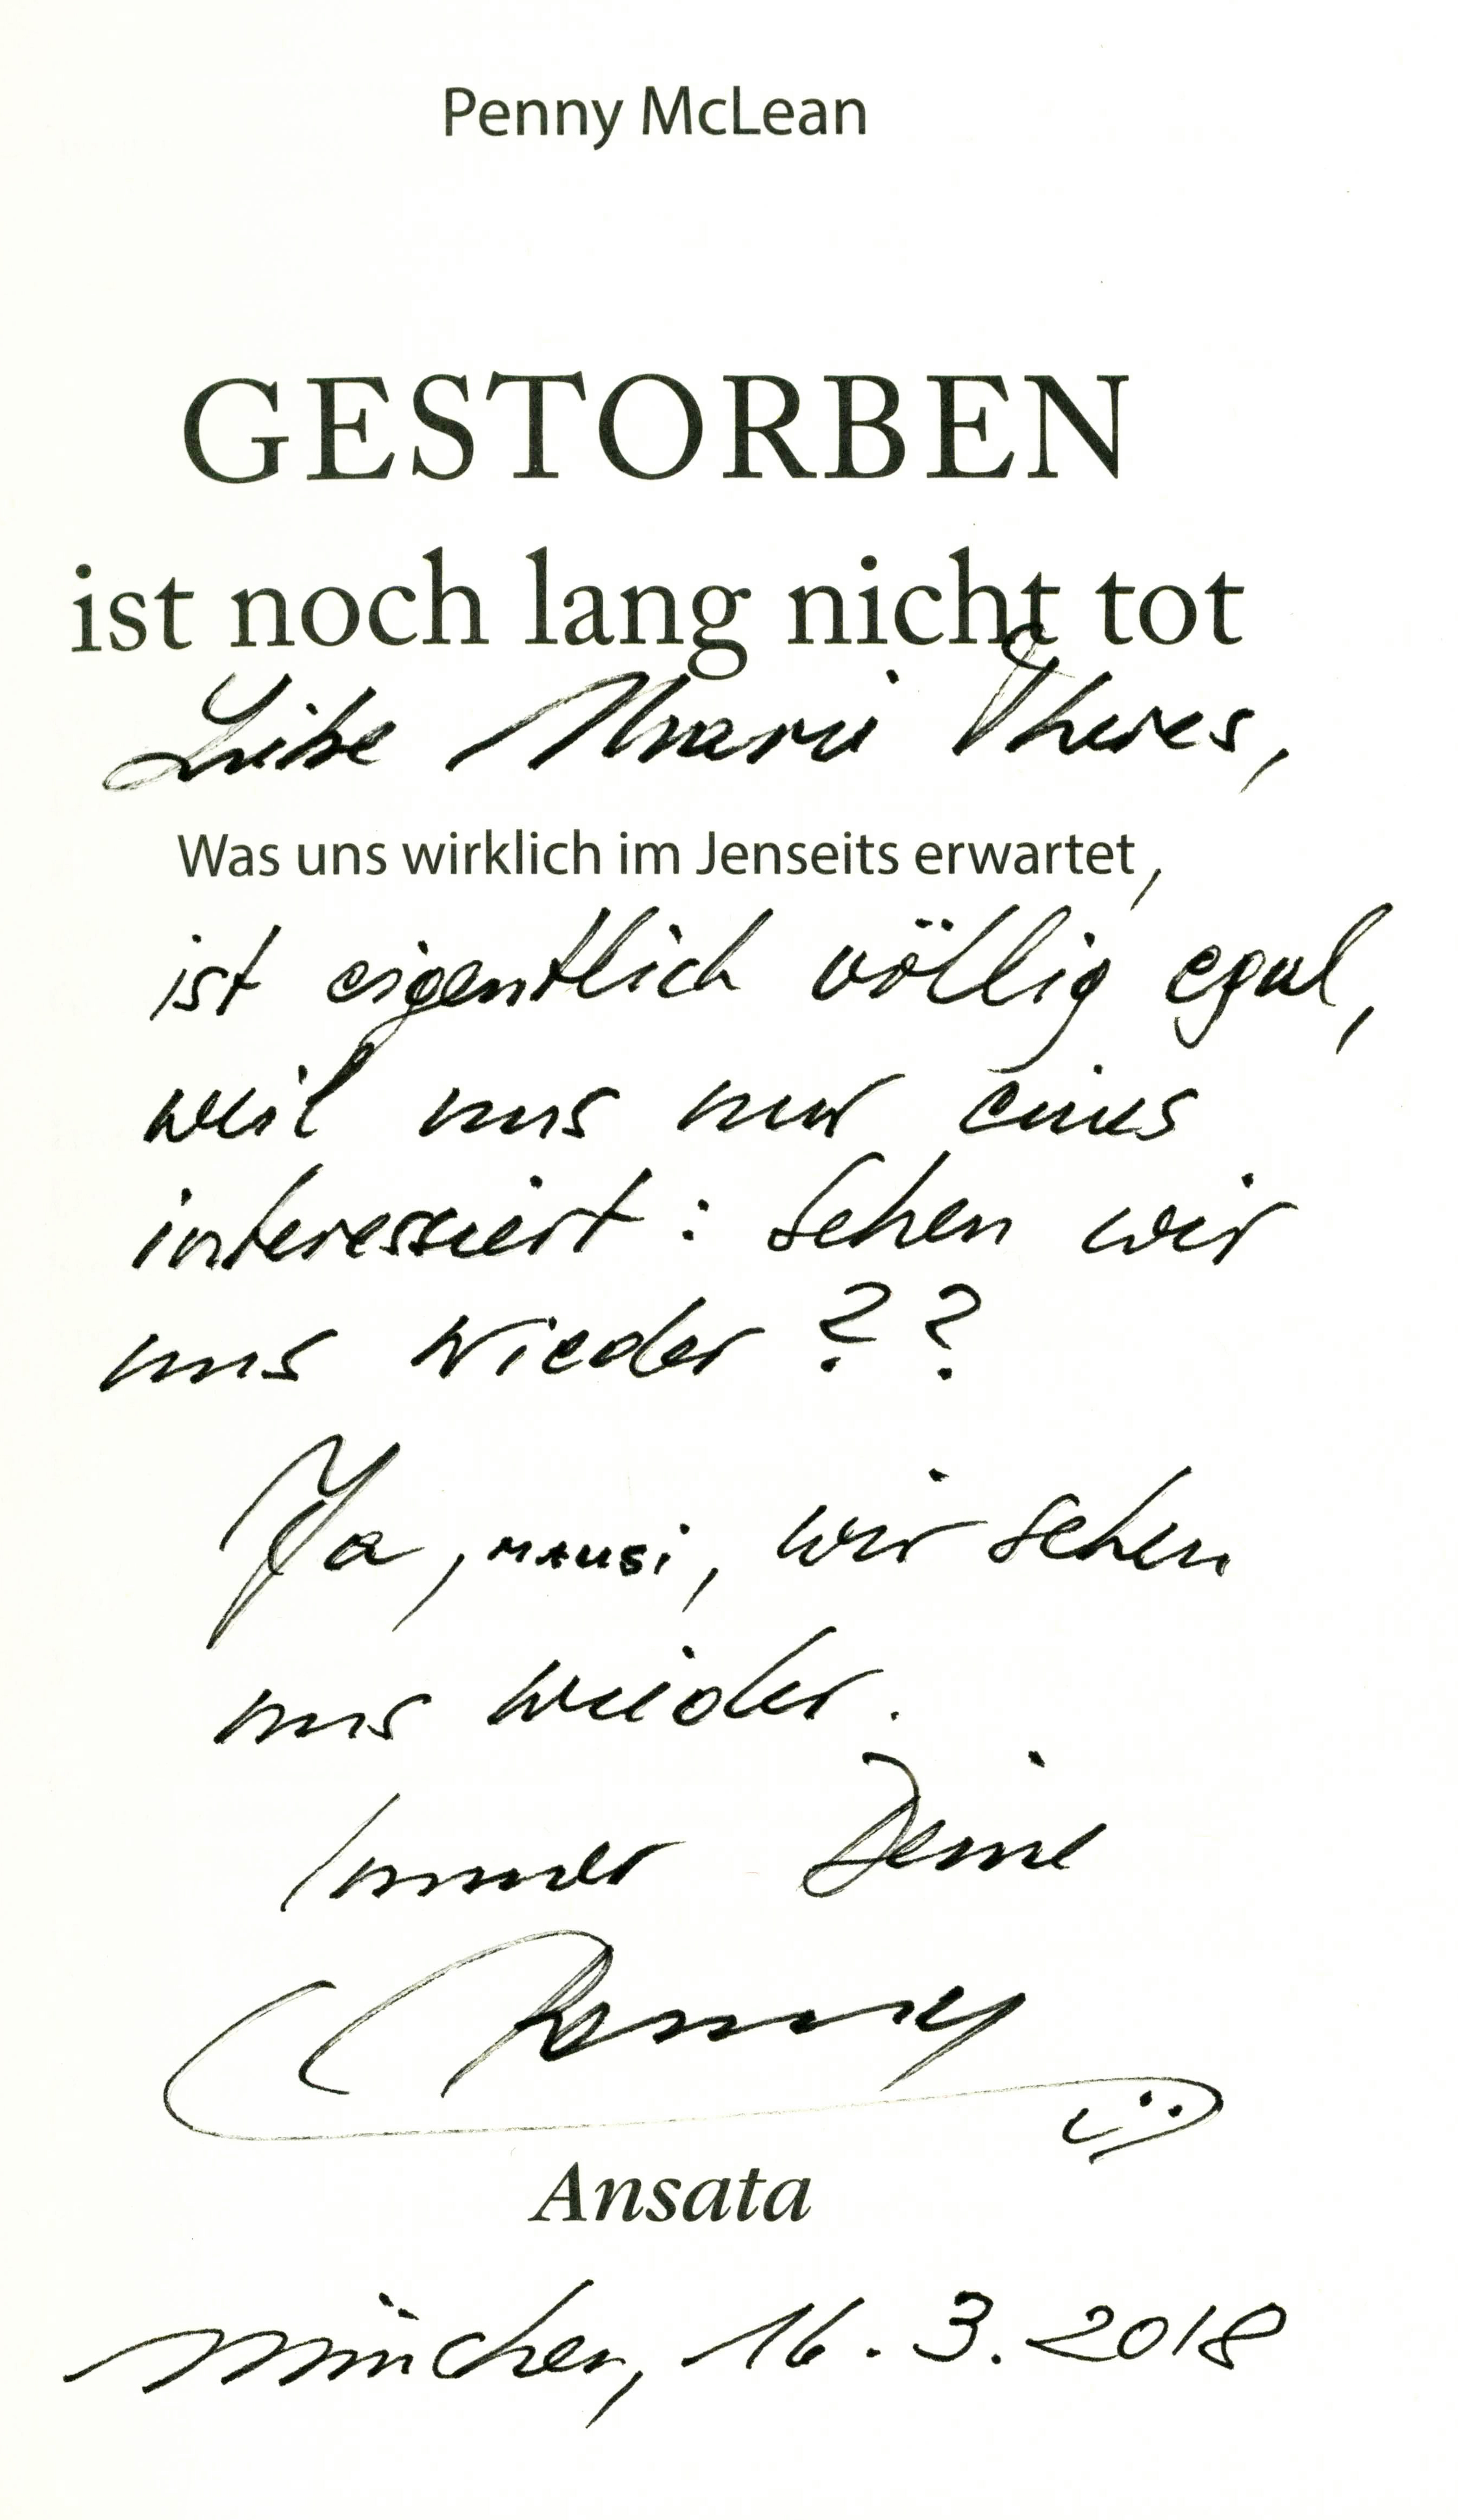 Penny McLean
GESTORBEN
ist noch lang nicht tot
Liebe Marie Theres,
Was uns wirklich im Jenseits erwartet,
ist eigentlich völlig egal,
weil uns nur eines
interessiert: Sehen wir
uns wieder??
Ja, MAUSI, wir sehen
uns wieder.
Immer Deine
Penny
Ansata
München, 16.3.2018